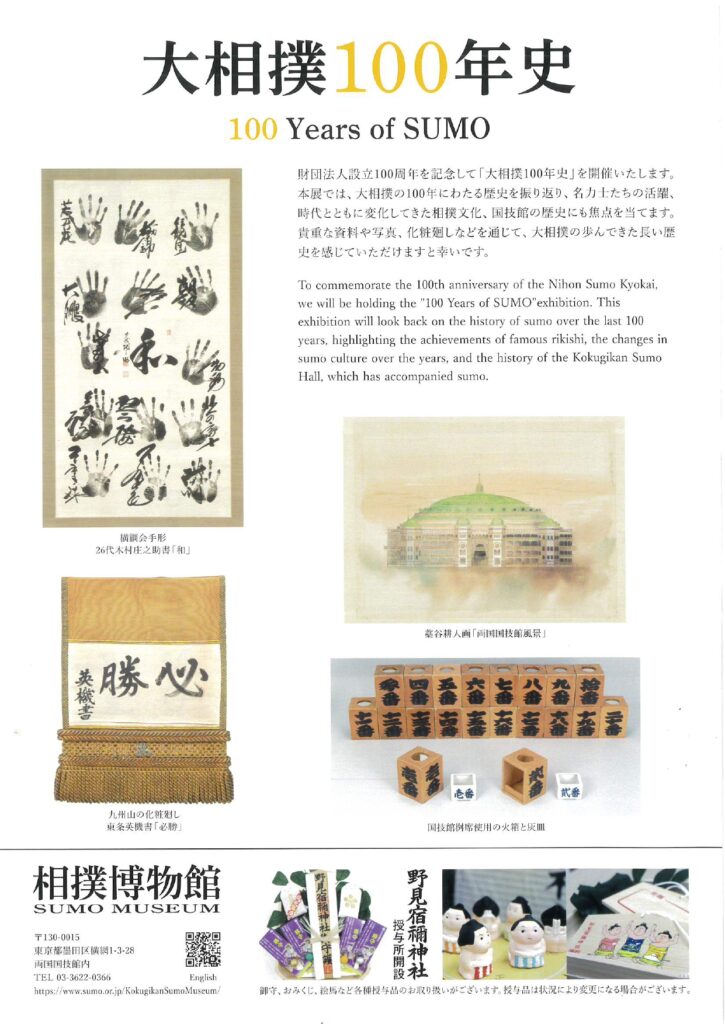 大相撲100年史
100 Years of SUMO
財団法人設立100周年を記念して「大相撲100年史」を開催いたします。
本展では、大相撲の100年にわたる歴史を振り返り、名力士たちの活躍、
時代とともに変化してきた相撲文化、国技館の歴史にも焦点を当てます。
貴重な資料や写真、化粧廻しなどを通じて、大相撲の歩んできた長い歴
史を感じていただけますと幸いです。
To commemorate the 100th anniversary of the Nihon Sumo Kyokai,
we will be holding the "100 Years of SUMO"exhibition. This
exhibition will look back on the history of sumo over the last 100
years, highlighting the achievements of famous rikishi, the changes in
sumo culture over the years, and the history of the Kokugikan Sumo
Hall, which has accompanied sumo.
和
横綱会手形
26代木村庄之助書「和」
藁谷耕人画「両国国技館風景」
必勝
英機書
九州山の化粧廻し
東条英機書「必勝」
参番 四番 五番 六番 七番 八番 九番 拾番
十一番 十二番 十三番 十四番 十五番 十六番 十七番 十八番 十九番 二十番
壱番 壱番 弐番 弐番
国技館例席使用の火箱と灰皿
相撲博物館
SUMO MUSEUM
〒130-0015
東京都墨田区横網1-3-28
両国国技館内
TEL 03-3622-0366
English
https://www.sumo.or.jp/KokugikanSumoMuseum/
野見宿禰神社
授与所開設
御守、おみくじ、絵馬など各種授与品のお取り扱いがございます。授与品は状況により変更になる場合がございます。